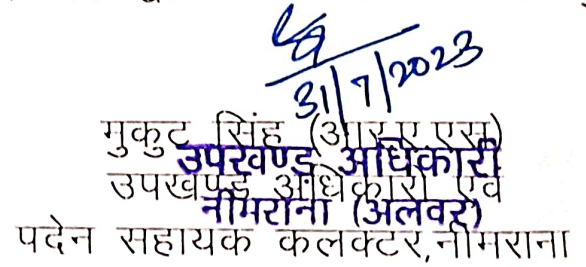 31/7/2023
मुकुट सिंह (आर.ए.एस)
उपखण्ड अधिकारी
उपखण्ड अधिकारी एवं
नीमराना (अलवर)
पदेन सहायक कलक्टर,नीमराना